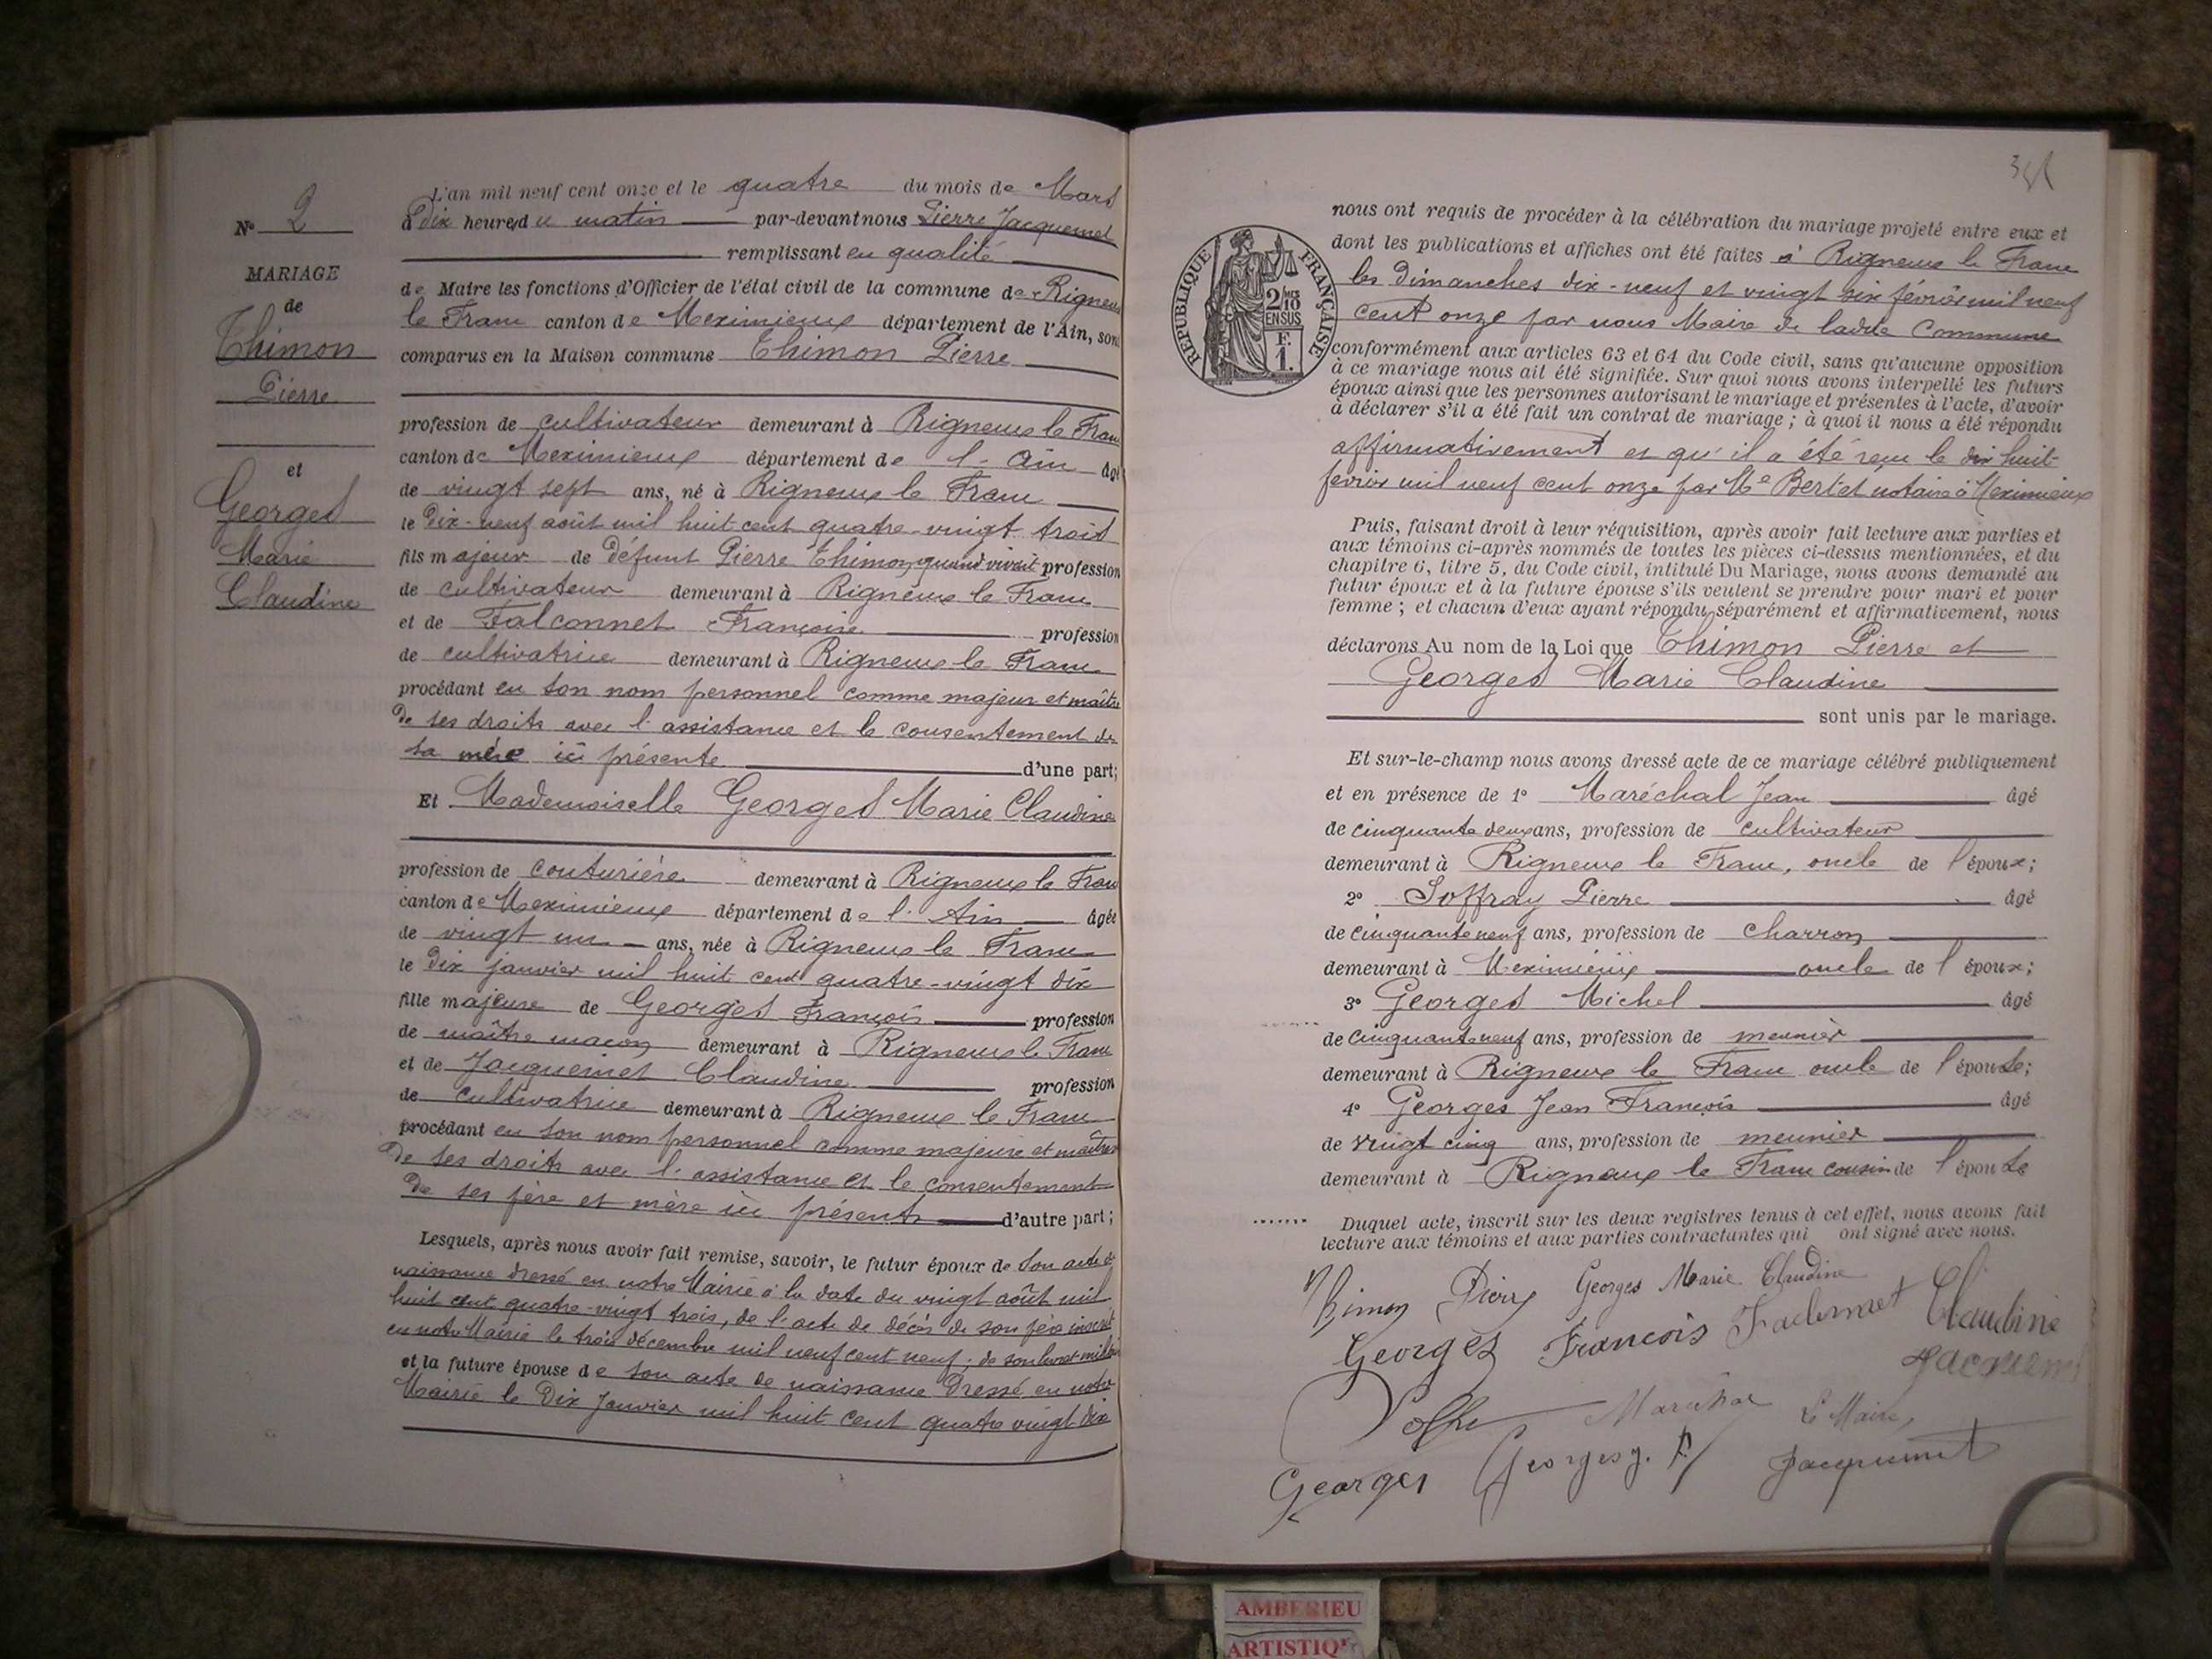 N° 2
MARIAGE
de
Thimon
Pierre
et
Georges
Marie
Claudine
L'an mil neuf cent onze et le quatre du mois de Mars
à dix heures du matin par-devant nous Pierre Jacquemet
remplissant en qualité
de Maire les fonctions d'Officier de l'état civil de la commune de Rigneux
le Franc canton de Meximieux département de l'Ain, sont
comparus en la Maison commune Thimon Pierre
profession de cultivateur demeurant à Rigneux le Franc
canton de Meximieux département de l'Ain âgé
de vingt sept ans, né à Rigneux le Franc
le dix-neuf août mil huit cent quatre-vingt trois
fils majeur de défunt Pierre Thimon, quand vivait profession
de cultivateur demeurant à Rigneux le Franc
et de Falconnet Françoise profession
de cultivatrice demeurant à Rigneux le Franc
procédant en son nom personnel comme majeur et maître
de ses droits avec l'assistance et le consentement de
sa mère ici présente d'une part;
Et Mademoiselle Georges Marie Claudine
profession de couturière demeurant à Rigneux le Franc
canton de Meximieux département de l'Ain âgée
de vingt un ans, née à Rigneux le Franc
le dix janvier mil huit cent quatre-vingt dix
fille majeure de Georges François profession
de maître maçon demeurant à Rigneux le Franc
et de Jacquemet Claudine profession
de cultivatrice demeurant à Rigneux le Franc
procédant en son nom personnel comme majeure et maîtresse
de ses droits avec l'assistance et le consentement
de ses père et mère ici présents d'autre part;
Lesquels, après nous avoir fait remise, savoir, le futur époux de son acte de
naissance dressé en notre Mairie à la date du vingt août mil
huit cent quatre-vingt trois, de l'acte de décès de son père inscrit
en notre Mairie le trois décembre mil neuf cent neuf; de son livret militaire
et la future épouse de son acte de naissance dressé en notre
Mairie le dix Janvier mil huit cent quatre vingt dix
RÉPUBLIQUE FRANÇAISE
2/10
EN SUS
F.
1.
nous ont requis de procéder à la célébration du mariage projeté entre eux et
dont les publications et affiches ont été faites à Rigneux le Franc
les dimanches dix-neuf et vingt six février mil neuf
cent onze par nous Maire de ladite Commune
conformément aux articles 63 et 64 du Code civil, sans qu'aucune opposition
à ce mariage nous ait été signifiée. Sur quoi nous avons interpellé les futurs
époux ainsi que les personnes autorisant le mariage et présentes à l'acte, d'avoir
à déclarer s'il a été fait un contrat de mariage; à quoi il nous a été répondu
affirmativement et qu'il a été reçu le dix huit
février mil neuf cent onze par Me Bertet notaire à Meximieux
Puis, faisant droit à leur réquisition, après avoir fait lecture aux parties et
aux témoins ci-après nommés de toutes les pièces ci-dessus mentionnées, et du
chapitre 6, titre 5, du Code civil, intitulé Du Mariage, nous avons demandé au
futur époux et à la future épouse s'ils veulent se prendre pour mari et pour
femme; et chacun d'eux ayant répondu séparément et affirmativement, nous
déclarons Au nom de la Loi que Thimon Pierre et
Georges Marie Claudine
sont unis par le mariage.
Et sur-le-champ nous avons dressé acte de ce mariage célébré publiquement
et en présence de 1° Maréchal Jean âgé
de cinquante deux ans, profession de cultivateur
demeurant à Rigneux le Franc, oncle de l'époux;
2° Joffray Pierre âgé
de cinquante neuf ans, profession de charron
demeurant à Meximieux oncle de l'époux;
3° Georges Michel âgé
de cinquante neuf ans, profession de meunier
demeurant à Rigneux le Franc oncle de l'épouse;
4° Georges Jean François âgé
de vingt cinq ans, profession de meunier
demeurant à Rigneux le Franc cousin de l'épouse
Duquel acte, inscrit sur les deux registres tenus à cet effet, nous avons fait
lecture aux témoins et aux parties contractantes qui ont signé avec nous.
Thimon Pierre Georges Marie Claudine
Georges François Claudine
Maréchal Le Maire,
Georges Georges J. F. Jacquemet
AMBERIEU
ARTISTIQU